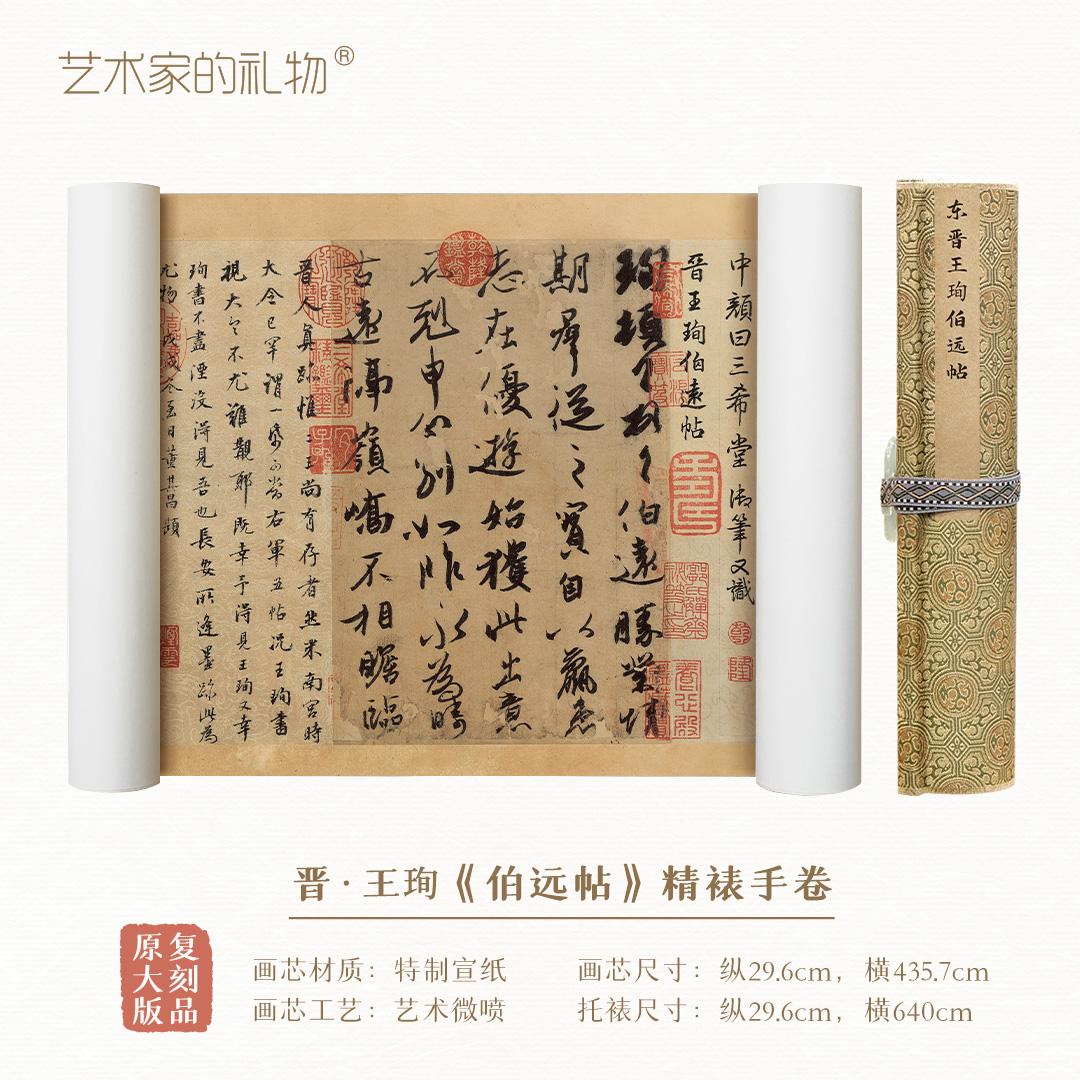 艺术家的礼物®
中顏曰三希堂 御筆又識
晉王珣伯遠帖
珣頓首頓首伯遠勝業情
期羣從之寶自以羸患
志在優遊始獲此出意
不剋申分別如昨永為疇
古遠隔嶺嶠不相瞻臨
晉人真跡惟二王尚有存者然米南宮時
大令已罕謂一紙可當右軍五帖況王珣書
視大令不尤難覯耶既幸予得見王珣又幸
珣書不盡湮沒得見吾也長安所逢墨跡此為
尤物戊戌冬至日董其昌題
东晋王珣伯远帖
晋·王珣《伯远帖》精裱手卷
原大版
复刻品
画芯材质：特制宣纸
画芯尺寸：纵29.6cm，横435.7cm
画芯工艺：艺术微喷
托裱尺寸：纵29.6cm，横640cm